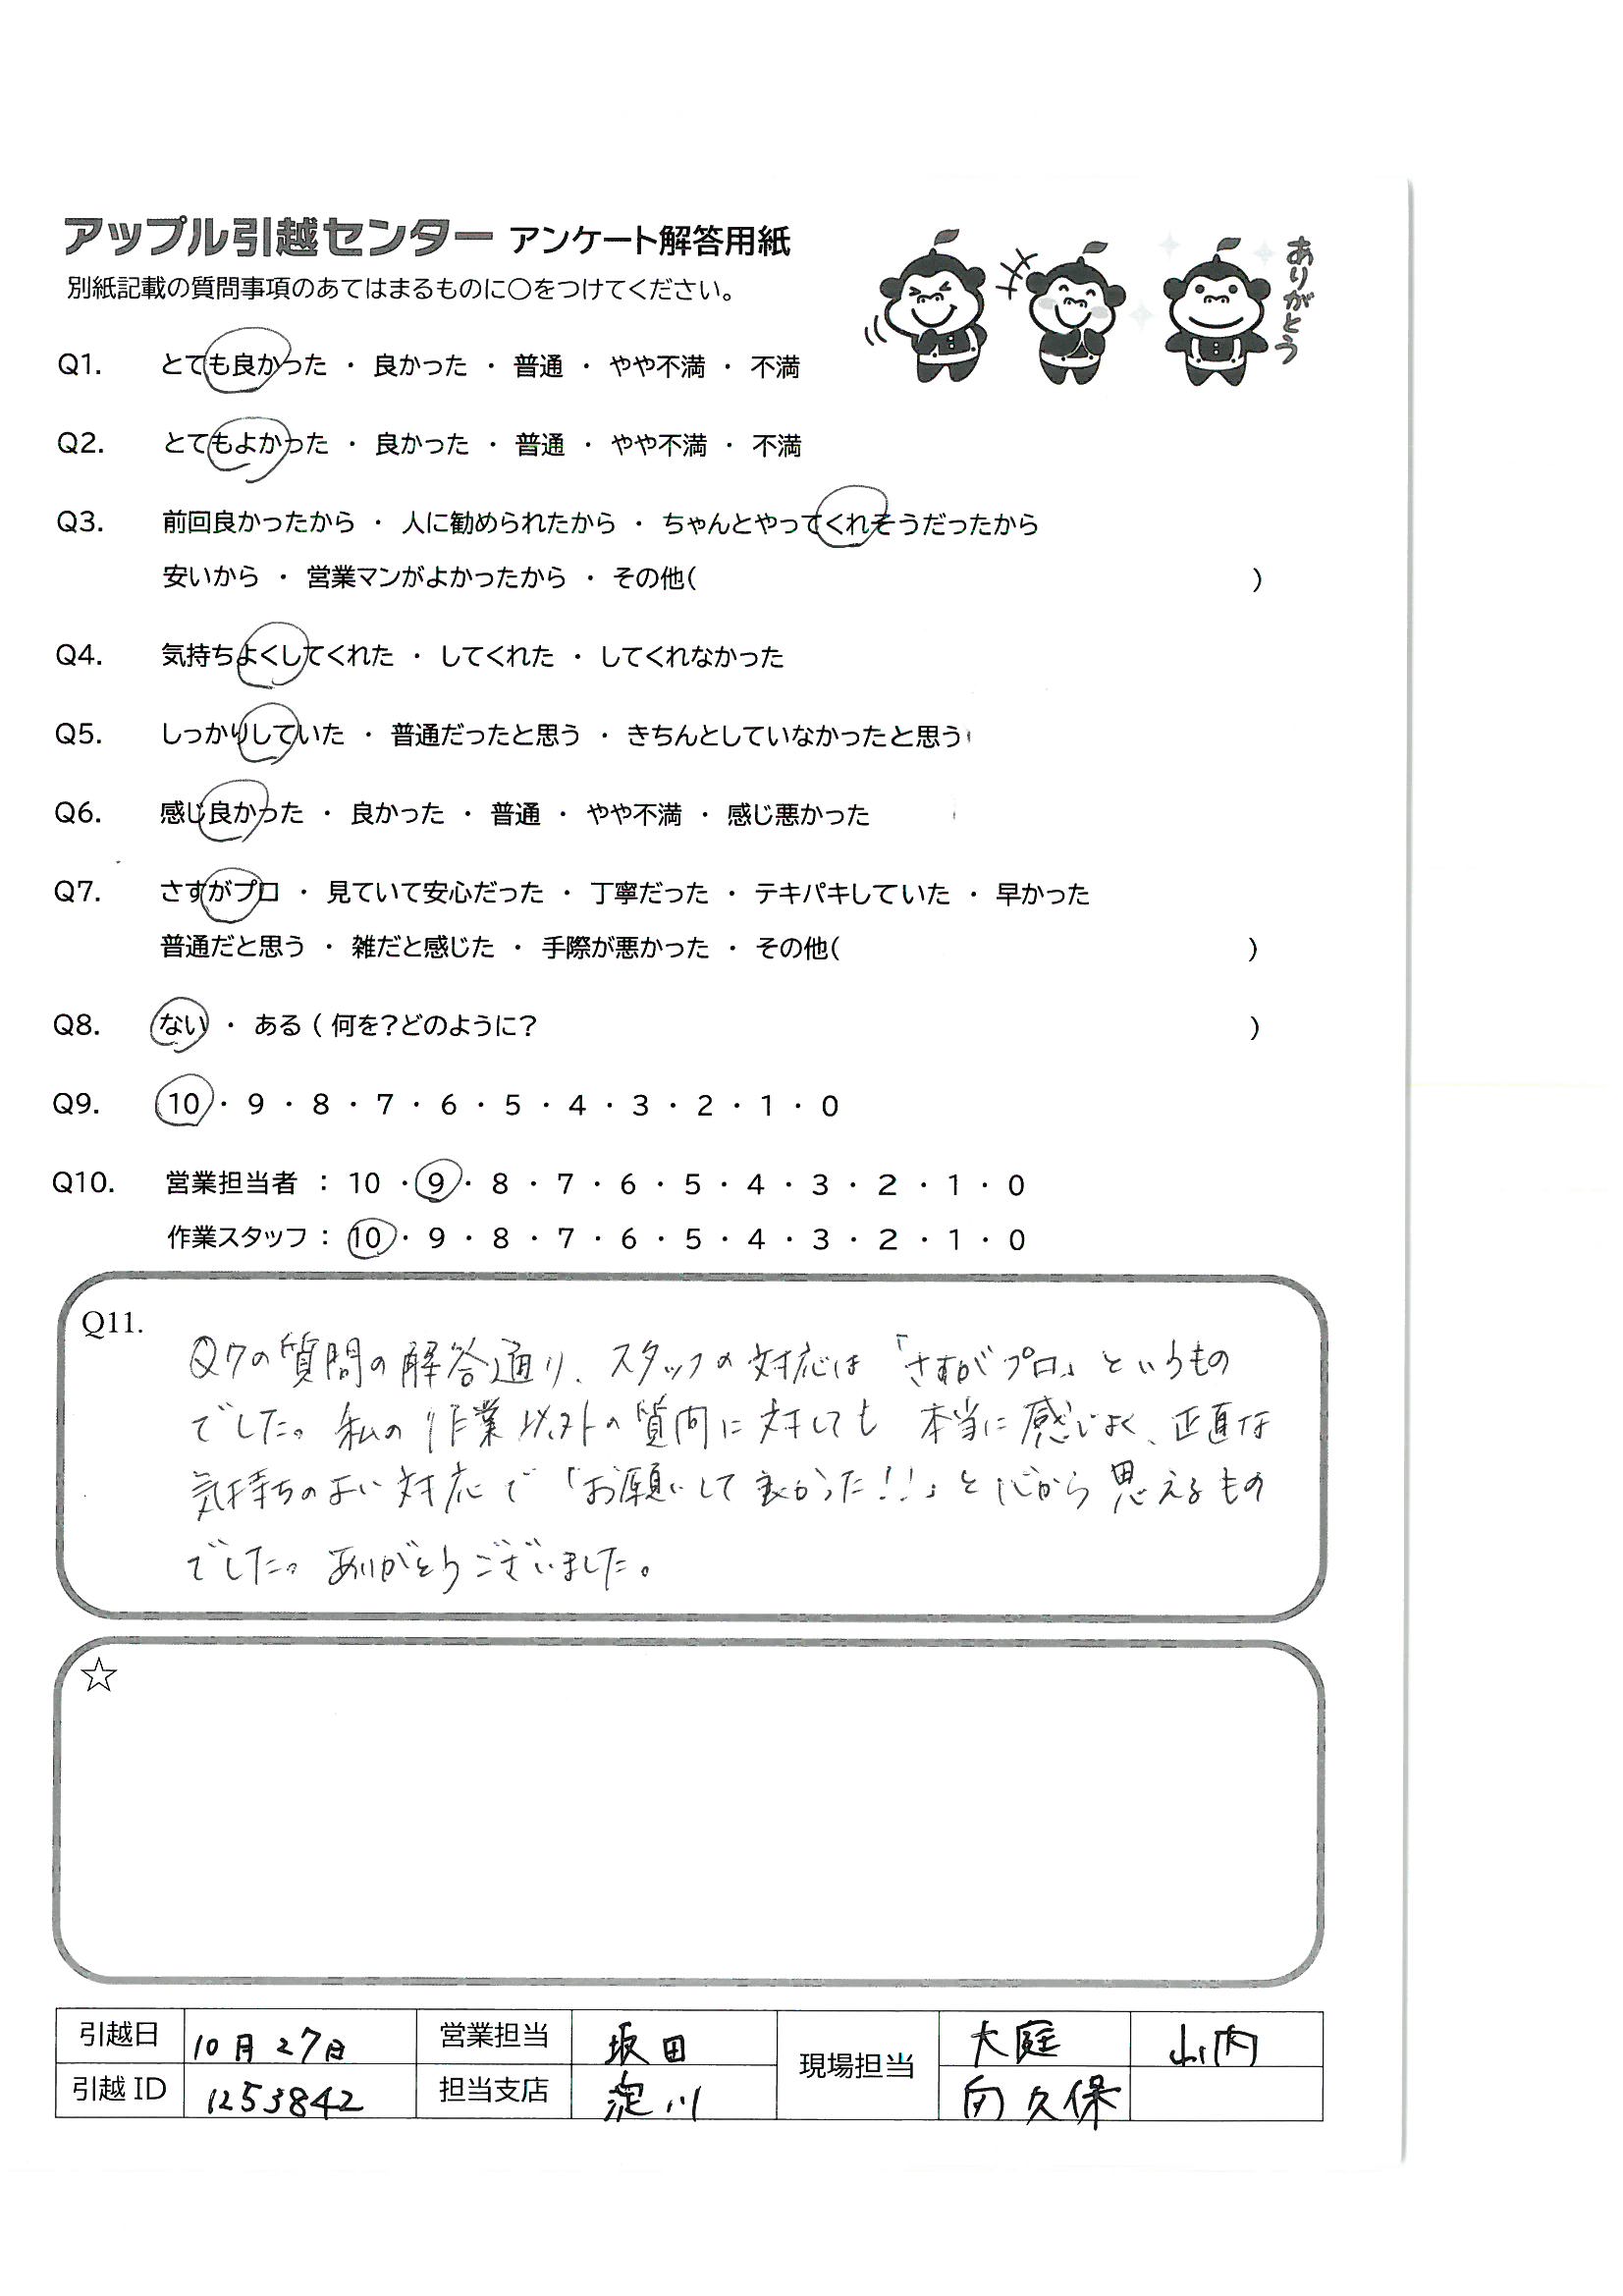 アップル引越センター アンケート解答用紙
別紙記載の質問事項のあてはまるものに○をつけてください。
ありがとう
Q1. とても良かった ・ 良かった ・ 普通 ・ やや不満 ・ 不満
Q2. とてもよかった ・ 良かった ・ 普通 ・ やや不満 ・ 不満
Q3. 前回良かったから ・ 人に勧められたから ・ ちゃんとやってくれそうだったから
安いから ・ 営業マンがよかったから ・ その他( )
Q4. 気持ちよくしてくれた ・ してくれた ・ してくれなかった
Q5. しっかりしていた ・ 普通だったと思う ・ きちんとしていなかったと思う
Q6. 感じ良かった ・ 良かった ・ 普通 ・ やや不満 ・ 感じ悪かった
Q7. さすがプロ ・ 見ていて安心だった ・ 丁寧だった ・ テキパキしていた ・ 早かった
普通だと思う ・ 雑だと感じた ・ 手際が悪かった ・ その他( )
Q8. ない ・ ある ( 何を?どのように? )
Q9. 10 ・ 9 ・ 8 ・ 7 ・ 6 ・ 5 ・ 4 ・ 3 ・ 2 ・ 1 ・ 0
Q10. 営業担当者 : 10 ・ 9 ・ 8 ・ 7 ・ 6 ・ 5 ・ 4 ・ 3 ・ 2 ・ 1 ・ 0
作業スタッフ : 10 ・ 9 ・ 8 ・ 7 ・ 6 ・ 5 ・ 4 ・ 3 ・ 2 ・ 1 ・ 0
Q11.
Q7の質問の解答通り、スタッフの対応は「さすがプロ」というもの
でした。私の作業以外の質問に対しても本当に感じよく、正直な
気持ちのよい対応で「お願いして良かった!!」と心から思えるもの
でした。ありがとうございました。
☆
引越日 10月27日 営業担当 坂田 現場担当 大庭 山内
引越ID 1253842 担当支店 淀川 向久保